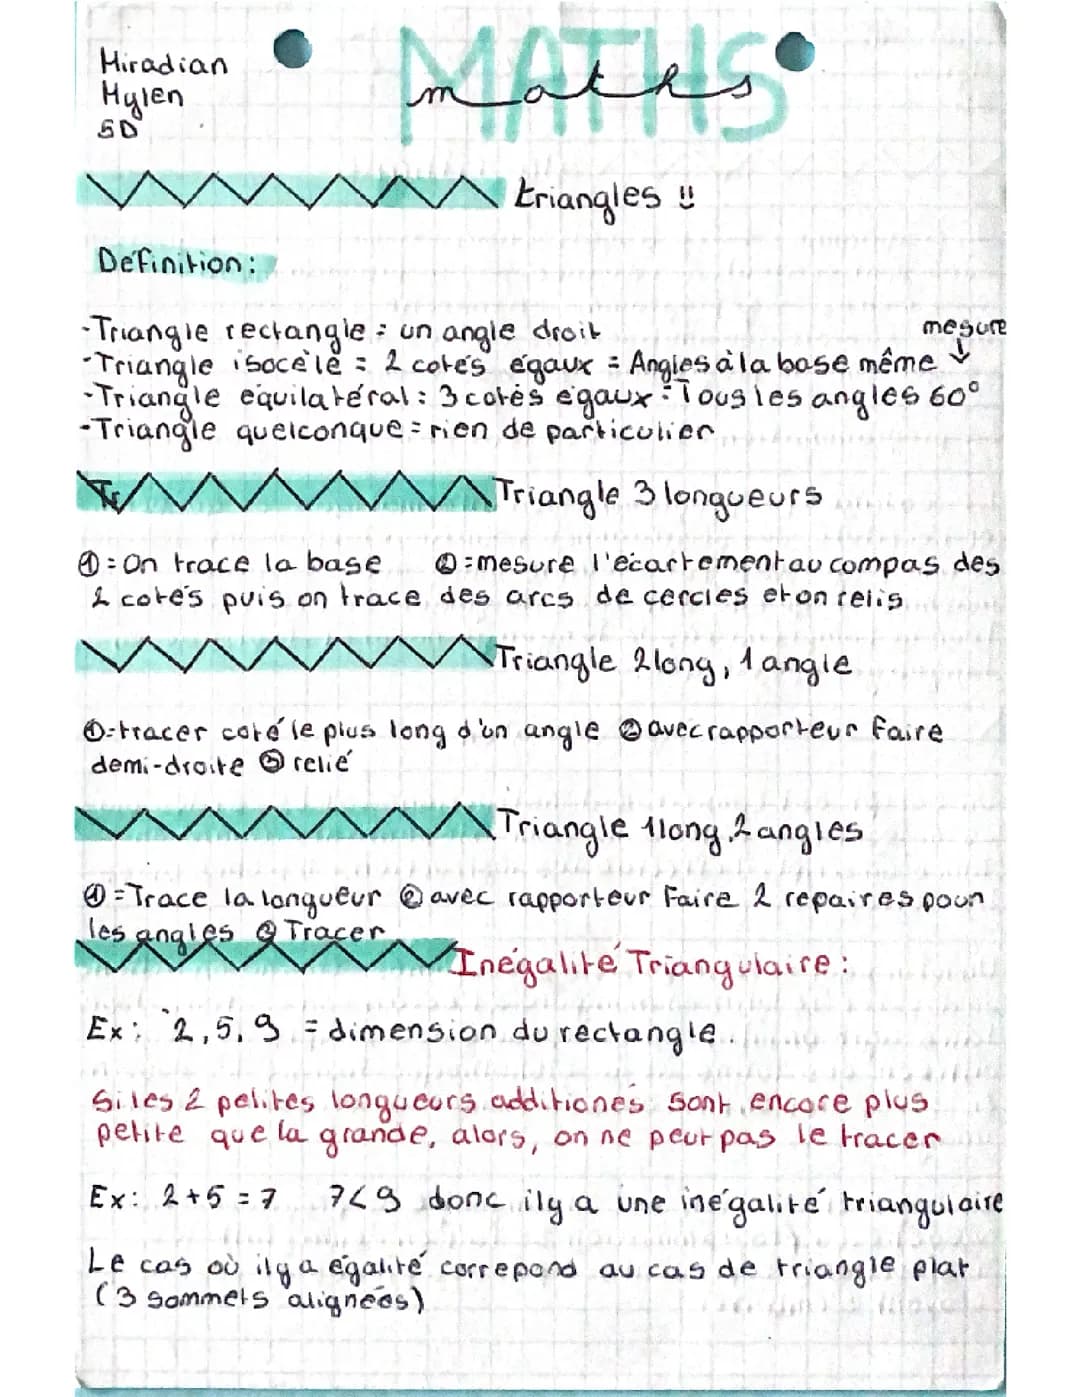 Miradian
Mylen
5D
MATHS
maths
triangles !!
Définition:
-Triangle rectangle = un angle droit
mesure
-Triangle isocèlé = 2 cotés égaux = Angles à la base même ↓
-Triangle équilatéral: 3 cotés égaux = Tous les angles 60°
-Triangle quelconque = rien de particulier
Tr
Triangle 3 longueurs
①=On trace la base ②=mesure l'écartement au compas des
2 cotés puis on trace des arcs de cercles et on relis
Triangle 2long, 1 angle
①=tracer coté le plus long d'un angle ② avec rapporteur faire
demi-droite ③ relié
Triangle 1long, 2 angles
①=Trace la longueur ② avec rapporteur Faire 2 repaires pour
les angles ③ Tracer
Inégalité Triangulaire:
Ex: 2,5,9 = dimension du rectangle.
Si les 2 petites longueurs additionés sont encore plus
petite que la grande, alors, on ne peut pas le tracer
Ex: 2+5=7 7<9 donc il y a une inégalité triangulaire
Le cas où il y a égalité correpond au cas de triangle plat
(3 sommets alignées)